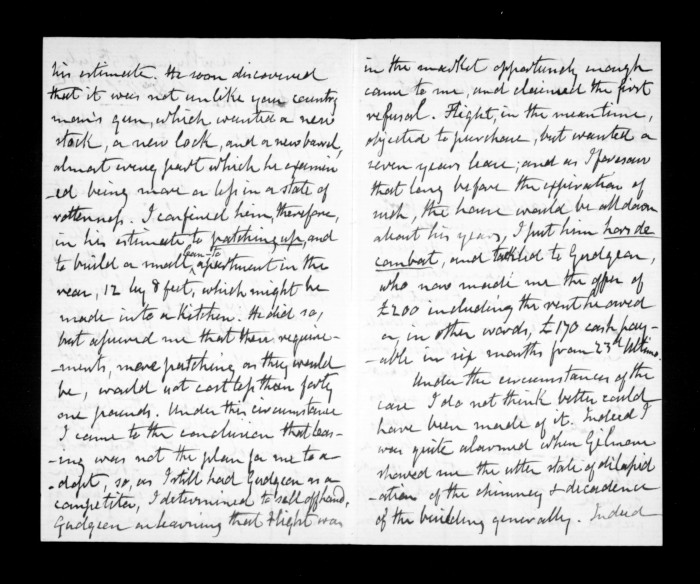 his estimate. He soon discovered
that it was not unlike your country
man's gun, which wanted a new
stock, a new lock, and a new barrel,
almost every part which he examin
-ed being more or less in a state of
rottenness. I confined him, therefore,
in his estimate to patching up, and
to build a small lean-to apartment in the
rear, 12 by 8 feet, which might be
made into a kitchen. He did so,
but assured me that these require-
-ments, mere patching as they would
be, would not cost less than forty
one pounds. Under this circumstance
I came to the conclusion that leas-
-ing was not the plan for me to a-
-dopt, so, as I still had Gudgeon as a
competitor, I determined to sell offhand,
Gudgeon on learning that Flight was
in the market opportunely enough
came to me, and claimed the first
refusal. Flight, in the meantime,
objected to purchase, but wanted a
seven years lease; and as I foresaw
that long before the expiration of
such, the house would be all down
about his years, I put him hors de
combat, and talked to Gudgeon,
who now made me the offer of
£200 including the rent he owed
or in other words, £170 cash pay-
-able in six months from 23rd Ultimo.
Under the circumstances of the
case I do not think better could
have been made of it. Indeed I
was quite alarmed when Gilmour
showed me the utter state of dilapid
-ation of the chimney & decadence
of the building generally. Indeed